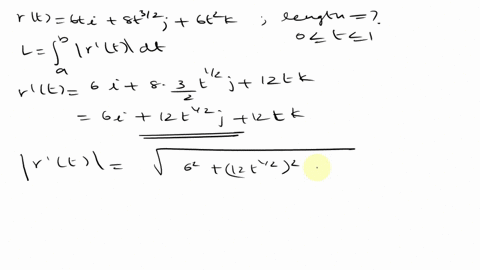 r(t) = 6t i + 8t^{3/2} j + 6t² k ; length = ?
0 ≤ t ≤ 1
L = ∫_a^b |r'(t)| dt
r'(t) = 6 i + 8 · 3/2 t^{1/2} j + 12 t k
= 6 i + 12 t^{1/2} j + 12 t k
|r'(t)| = √(6² + (12 t^{1/2})²